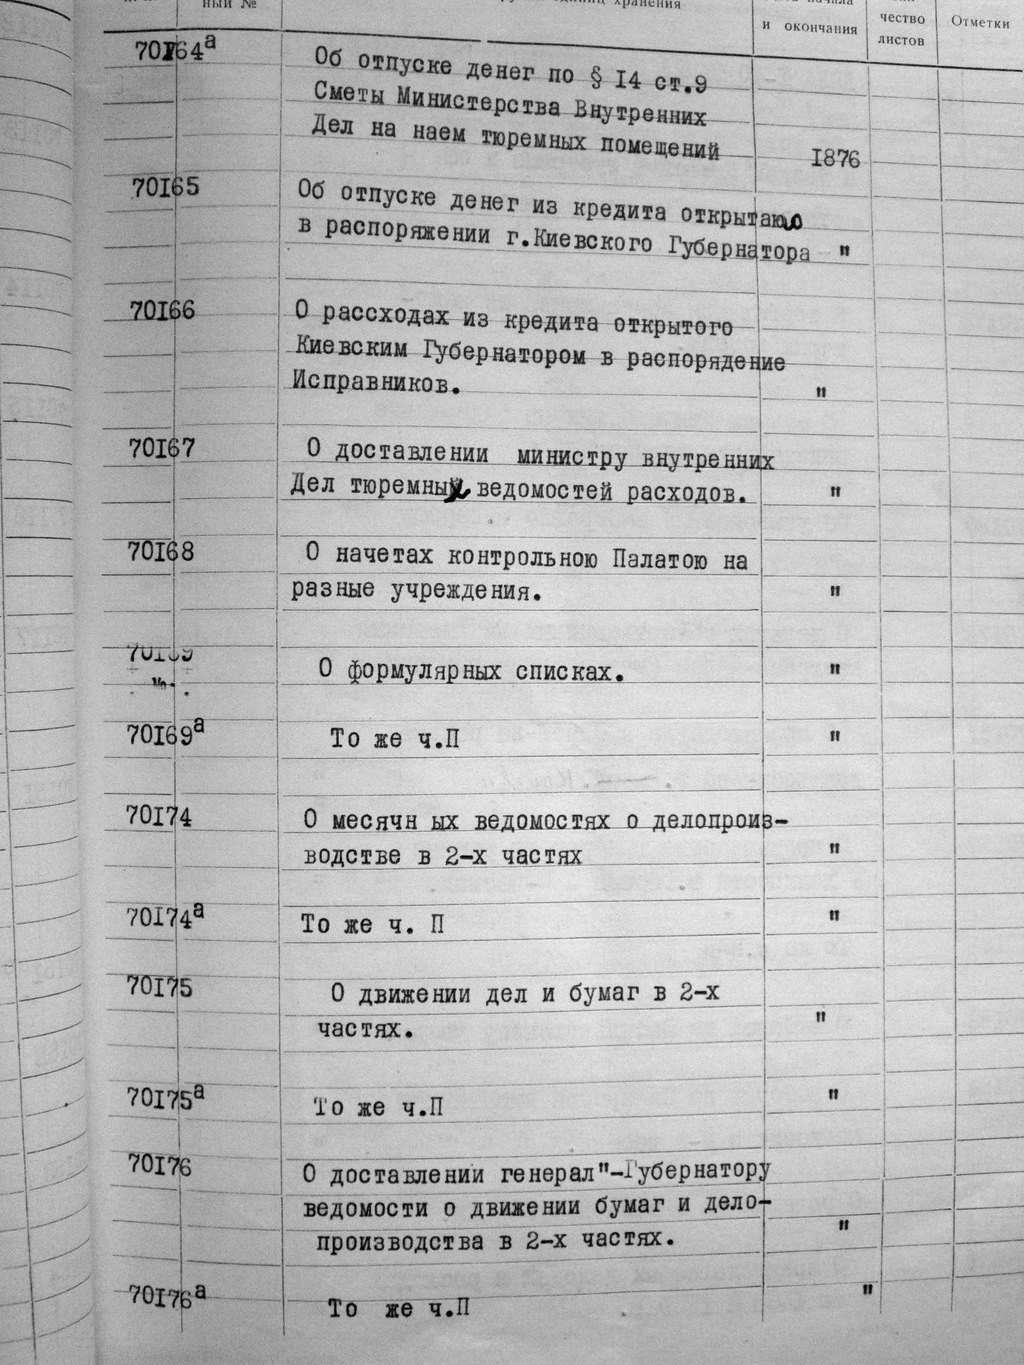 ный № единиц хранения начала
и окончания чество
листов Отметки
70164а Об отпуске денег по § 14 ст.9
Сметы Министерства Внутренних
Дел на наем тюремных помещений 1876
70165 Об отпуске денег из кредита открытаго
в распоряжении г.Киевского Губернатора "
70166 О рассходах из кредита открытого
Киевским Губернатором в распорядение
Исправников. "
70167 О доставлении министру внутренних
Дел тюремных ведомостей расходов. "
70168 О начетах контрольною Палатою на
разные учреждения. "
70169 О формулярных списках. "
70169а То же ч.П "
70174 О месячн ых ведомостях о делопроиз-
водстве в 2-х частях "
70174а То же ч. П "
70175 О движении дел и бумаг в 2-х
частях. "
70175а То же ч.П "
70176 О доставлении генерал"-Губернатору
ведомости о движении бумаг и дело-
производства в 2-х частях. "
70176а То же ч.П "